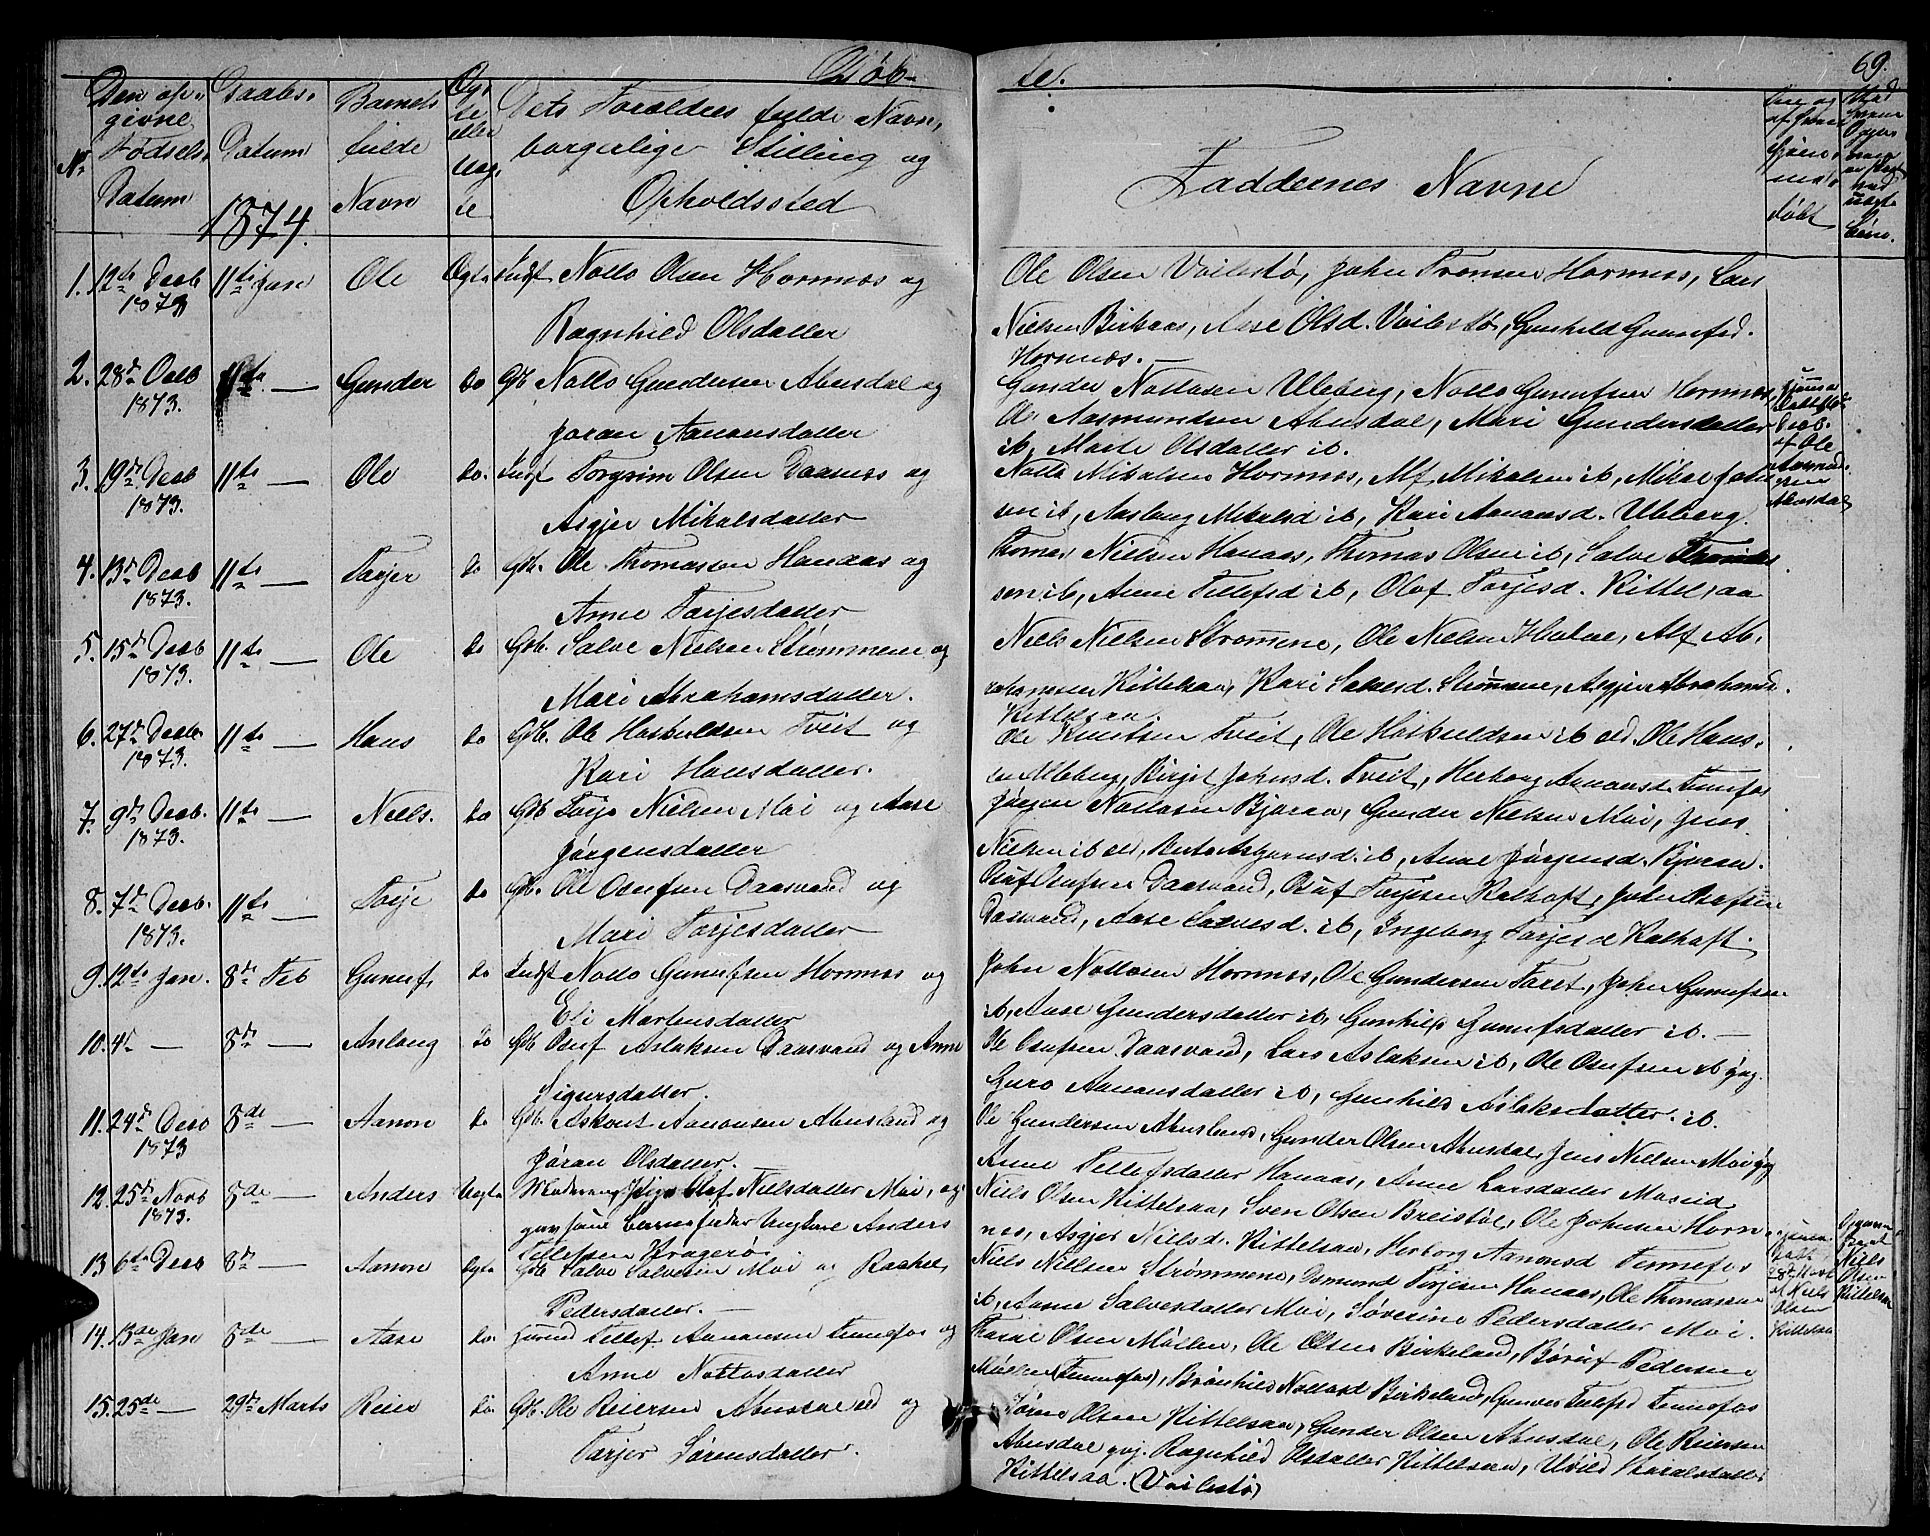 Døb-
te.
69.
No
Den op-
givne
Fødsels-
Datum
Daabs-
Datum
1874.
Barnets
fulde
Navn
Ægte
eller
Uæg-
te
Dets Forældres fulde Navn,
borgerlige Stilling og
Opholdssted
Faddernes Navne
1. 12te Decb 1873 11te Jan Ole Ægte Indst Notto Olsen Hornnes og
Ragnhild Olsdatter
Ole Olsen Veilestø, John Tronsen Hornnes, Lars
Nielsen Birkaas, Aase Olsd. Veilestø, Gunhild Gunufsd.
Hornnes. —
2. 28de Octb 1873. 11te — Gunder do Gb. Notto Gundersen Abusdal og
Joran Aanonsdatter
Gunder Nottosen Uleberg, Notto Gunufsen Hornnes,
Ole Aasmundsen Abusdal, Mari Gundersdatter
ib, Marte Olsdatter ib.
3. 19de Decb 1873. 11te — Ole do. Indst Torgrim Olsen Daanes og
Asgjer Mikalsdatter
Notto Mikalsen Hornnes, Alf Mikalsen ib, Mikal John
sen ib, Aaslaug Mikalsd ib, Kari Aanonsd. Uleberg.
4. 13de Decb 1873. 11te — Tarjer do Gb. Ole Thomassen Hanaas og
Anne Tarjesdatter
Thomas Nielsen Hanaas, Thomas Olsen ib, Salve Thomas
sen ib, Anne Tellefsd ib, Olof Torjesd. Kittelsaa
5. 15de Decb 1873. 11te — Ole do Gb. Salve Nielsen Strømmene og
Mari Abrahamsdatter.
Niels Nielsen Strømmene, Ole Nielsen, Alf Ab-
rahamsen Kittelsaa, Kari Salvesd. Strømmene, Asgjer Abrahamsd.
Kittelsaa.
6. 27de Decb. 1873. 11te — Hans do Gb. Ole Høskuldsen Tveit og
Kari Hansdatter.
Ole Knutsen Tveit, Ole Høskuldsen ib eld. Ole Hans-
sen Uleberg, Birgit Johnsd. Tveit, Herborg Aanonsd Fennefos
7. 9de Decb. 1873. 11te — Niels. do Gb Torje Nielsen Moi og Aase
Jørgensdatter
Jørgen Nottosen Bjoraa, Gunder Nielsen Moi, Jens
Nielsen ib eld, Berte Asbjørnsd. ib, Anne Jørgensd. Bjoraa.
8. 7de Decb. 1873. 11te — Torje do Gb. Ole Osufsen Daasvand og
Mari Torjesdatter
Osuf Osufsen Daasvand, Osuf Torjesen Kalhoft, John Osufsen
Daasvand, Aase Salvesd. ib, Ingeborg Torjesd Kalhoft.
9. 12te Jan. 8de Feb Gunuf. do Indst Notto Gunufsen Hornnes og
Eli Mortensdatter
John Nottosen Hornnes, Ole Gundersen Faret, John Gunufsen
ib, Aase Gundersdatter ib, Gunhild Gunufsdatter ib. —
10. 4de — 8de — Anlaug do Gb Osuf Aslaksen Daasvand og Anne
Sigursdatter.
Ole Osufsen Daasvand, Lars Aslaksen ib, Ole Osufsen ib gvg.
Guro Aanonsdatter ib, Gunhild Aslaksdatter ib.
11. 24de Decb 1873 8de — Aanon do Gb. Askout Aanonsen Abusland og
Jøran Olsdatter.
Ole Gundersen Abusland, Gunder Olsen Abusdal, Jens Nielsen Moi gvg
Anne Tellefsdatter Hanaas, Anne Larsdatter
12. 25de Novb 1873. 8de — Anders Uægte Pige Olaf Nielsdatter Moi, og
Barnefader Ungkarl Anders
Tellefsen Kragerø
Niels Olsen Kittelsaa, Sven Olsen Breistøl, Ole Johnsen Horn
nes, Asgjer Nielsd. Kittelsaa, Herborg Aanonsd Fennefos
13 6te Decb 8de — Aanon Ægte Gb Salve Salvesen Moi og Rachel
Pedersdatter. —
Niels Nielsen Strømmene, Osmund Torjesen Hanaas, Ole Thomassen
ib, Aasne Salvesdatter Moi, Søverine Pedersdatter Moi.
14. 13de Jan 8de — Aase do. Tellef Aanonsen Fennefos og
Anne Nottosdatter
Olsen Moilen, Ole Olsen Birkeland, Børuf Pedersen
Moilen (Fennefos), Brønhild Nottosd Birkeland, Gunver Tellefsd Fennefos
15. 25de — 29de Marts Reier do. Gb. Ole Reiersen Abusdal ved og
Tarjer Sørensdatter.
Søren Olsen Kittelsaa, Gunder Olsen Abusdal, Ole Reiersen
Abusdal gvg. Ragnhild Olsdatter Kittelsaa, Haraldsdatter
Kittelsaa. (Veilestø)